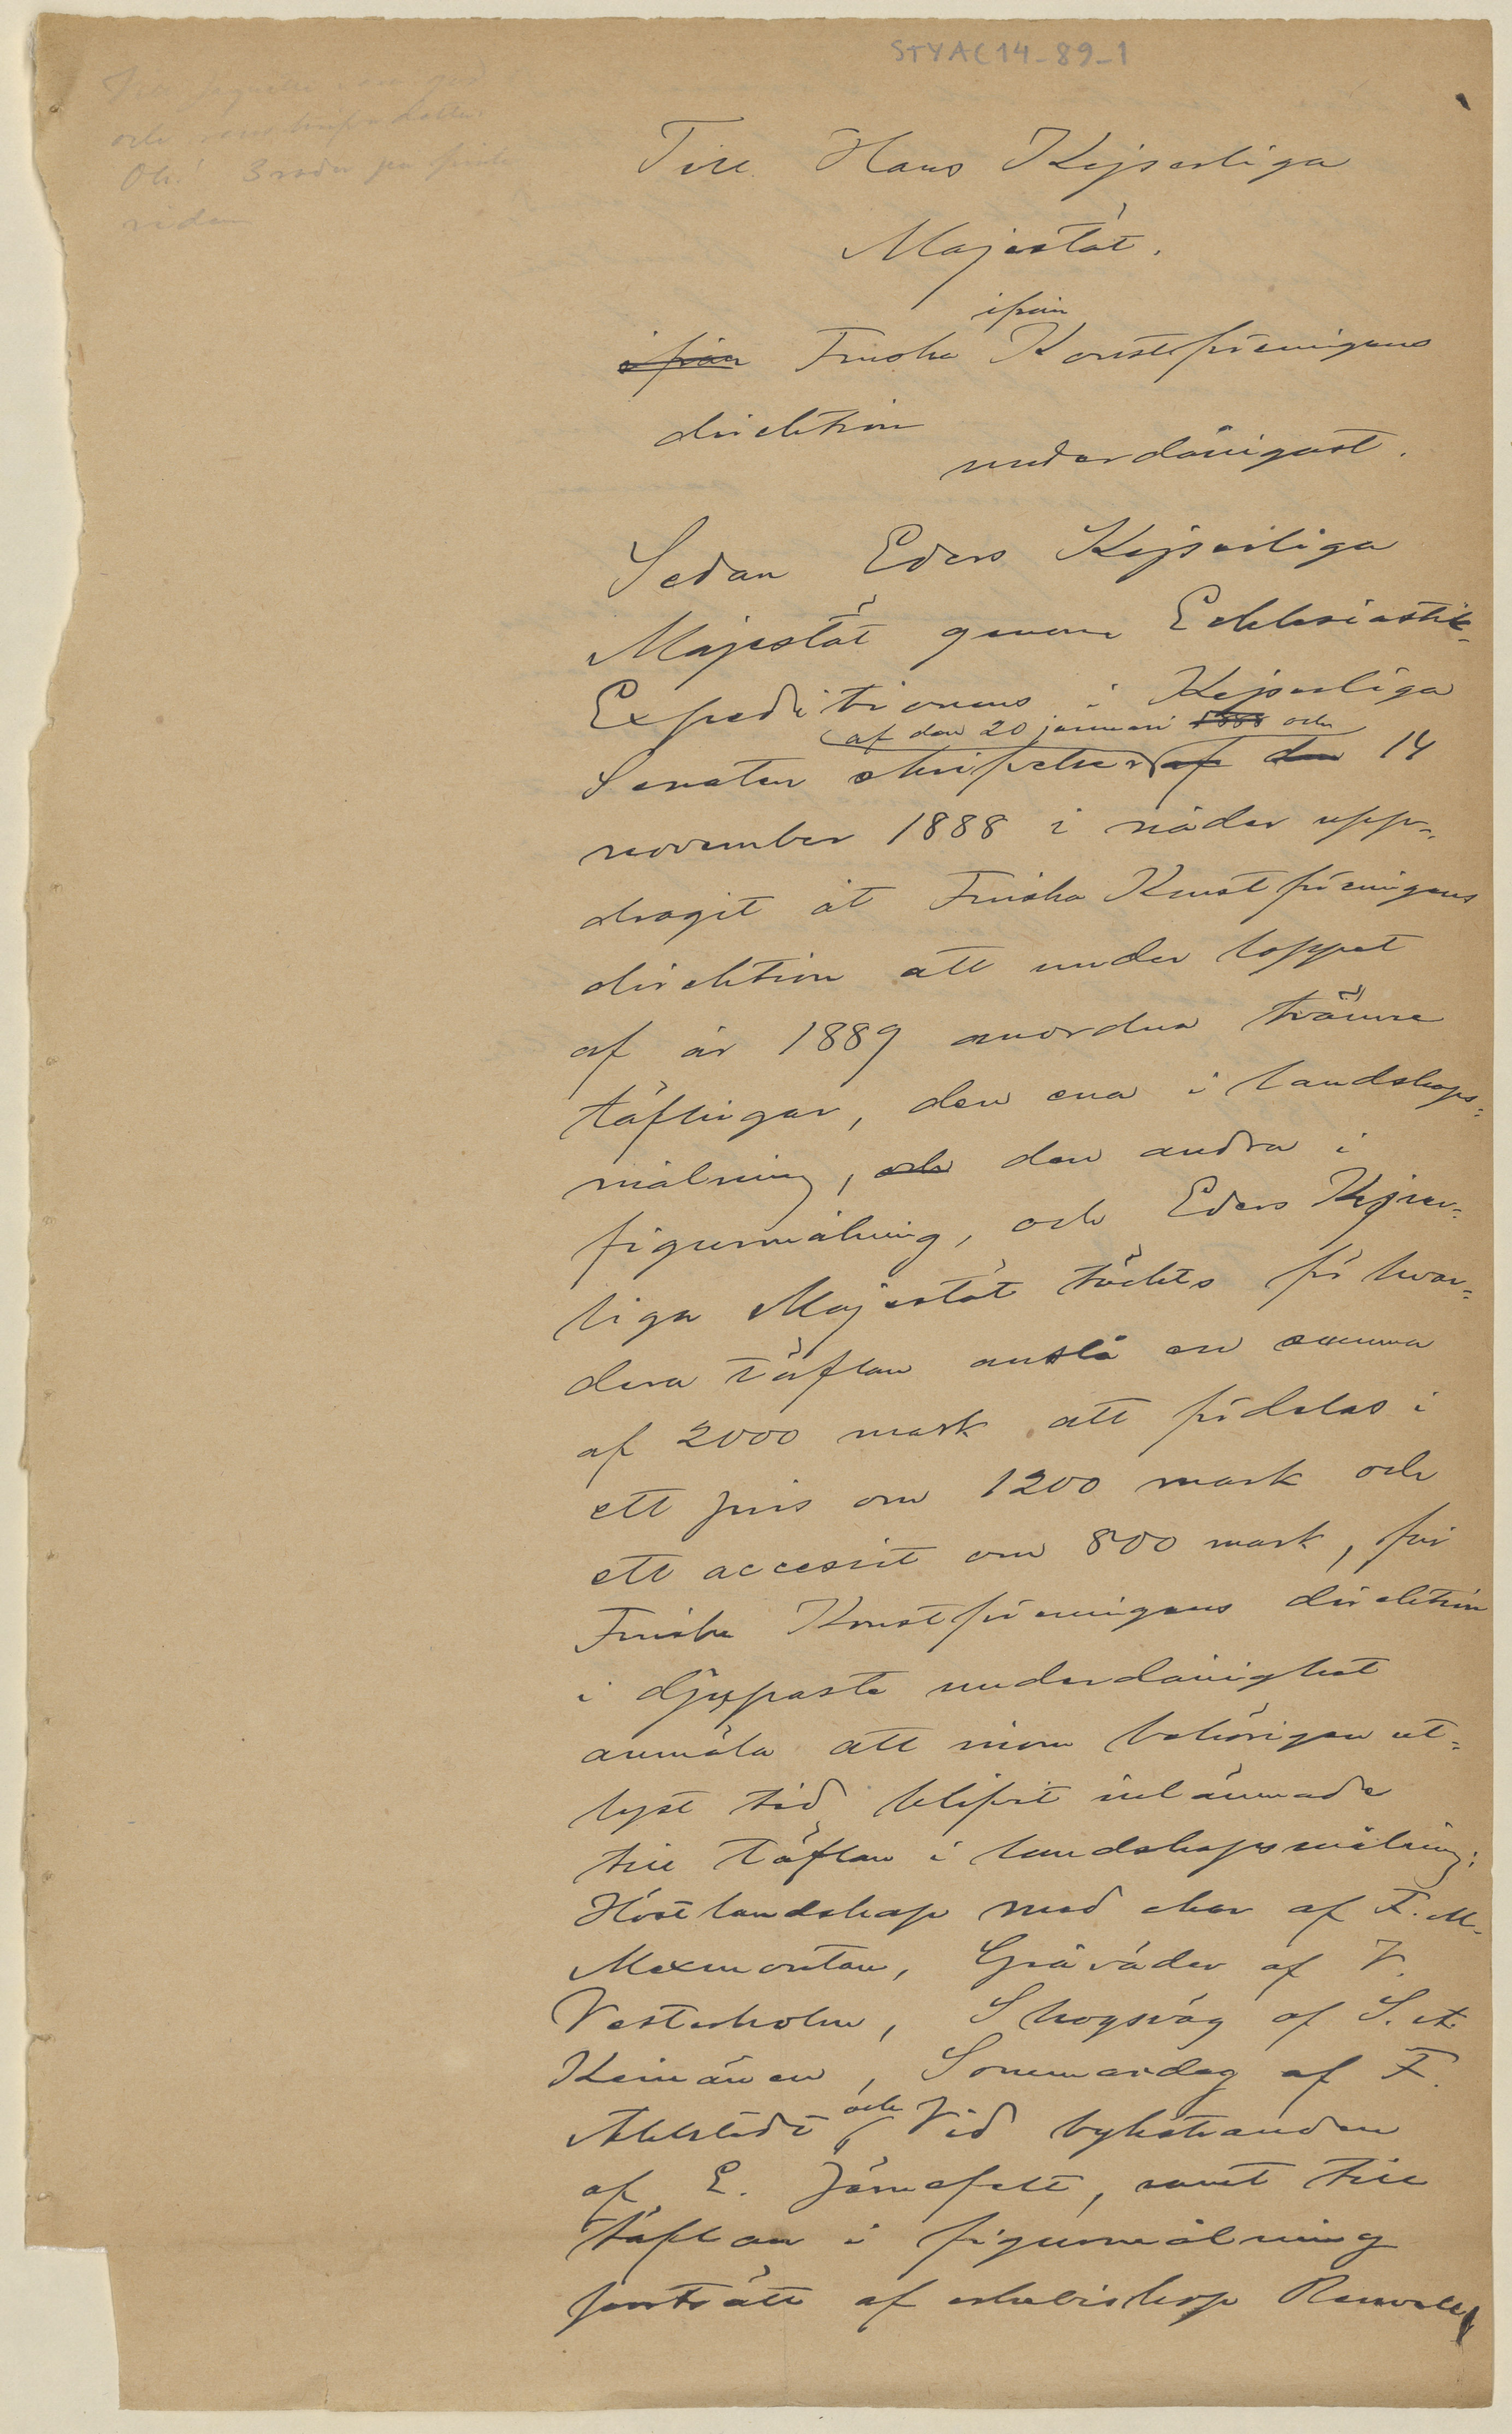 STYAC14-89-1
och
Ob! 3 rader
Till Hans Kejserliga
Majestät.
ifrån
ifrån Finska Konstföreningens
direktion
underdånigast.
Sedan Eders Kejserliga
Majestät genom Ecklesiastik-
Expeditionens i Kejserliga
af den 20 januari 1888 och
Senaten skrifvelser af den 14
november 1888 i nåder upp-
dragit åt Finska Konstföreningens
direktion att under loppet
af år 1889 anordna tvänne
täflingar, den ena i landskaps-
målning, och den andra i
figurmålning, och Eders Kejser-
liga Majestät täckts för hvar-
dera täflan anslå en summa
af 2000 mark att fördelas i
ett pris om 1200 mark och
ett accessit om 800 mark, får
Finska Konstföreningens direktion
i djupaste underdånighet
anmäla att inom behörigen ut-
lyst tid blifvit inlämnade
till täflan i landskapsmålning:
Höstlandskap med ekar af F. M.
Mexmontan, Gråväder af V.
Vesterholm, Skogsväg af S. A.
Keinänen, Sommardag af F.
Ahlstedt och Vid bykstranden
af E. Järnefelt, samt till
täflan i figurmålning
porträtt af erkebiskop Renvall